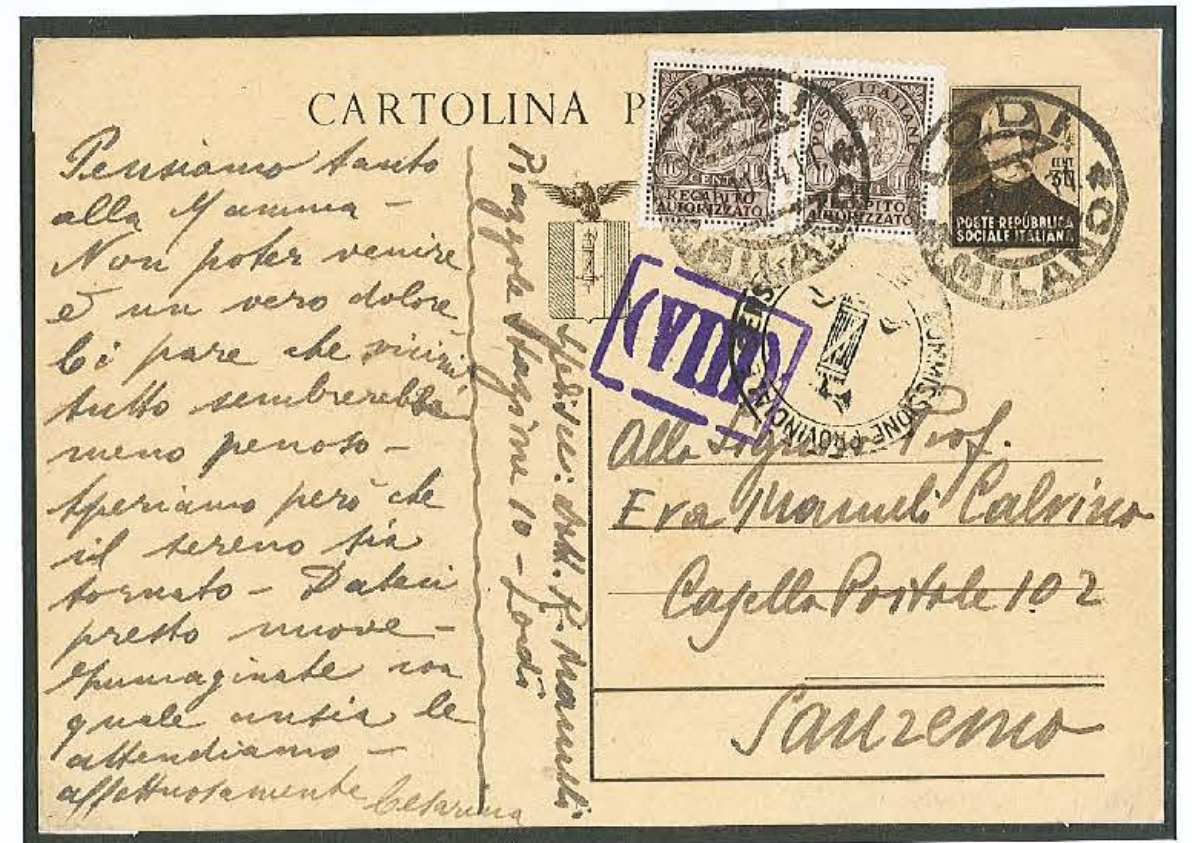 CARTOLINA P
Pensiamo tanto
alla Mamma -
Non poter venire
è un vero dolore
Ci pare che vicini
tutto sembrerebbe
meno penoso -
Speriamo però che
il sereno sia
tornato - Dateci
presto nuove -
Immaginate con
quale ansia le
attendiamo -
affettuosamente Cesarina
Spedisce: Dott. R. Mameli
Piazzale Stazione 10 - Lodi
POSTE ITALIANE
10 CENT. 10
RECAPITO
AUTORIZZATO
POSTE ITALIANE
10 10
RECAPITO
AUTORIZZATO
CENT
30
POSTE REPUBBLICA
SOCIALE ITALIANA
LODI
MILANO
LODI
MILANO
(VIII)
COMMISSIONE PROVINCIALE
Alla Signora Prof.
Eva Mameli Calvino
Casella Postale 102
Sanremo